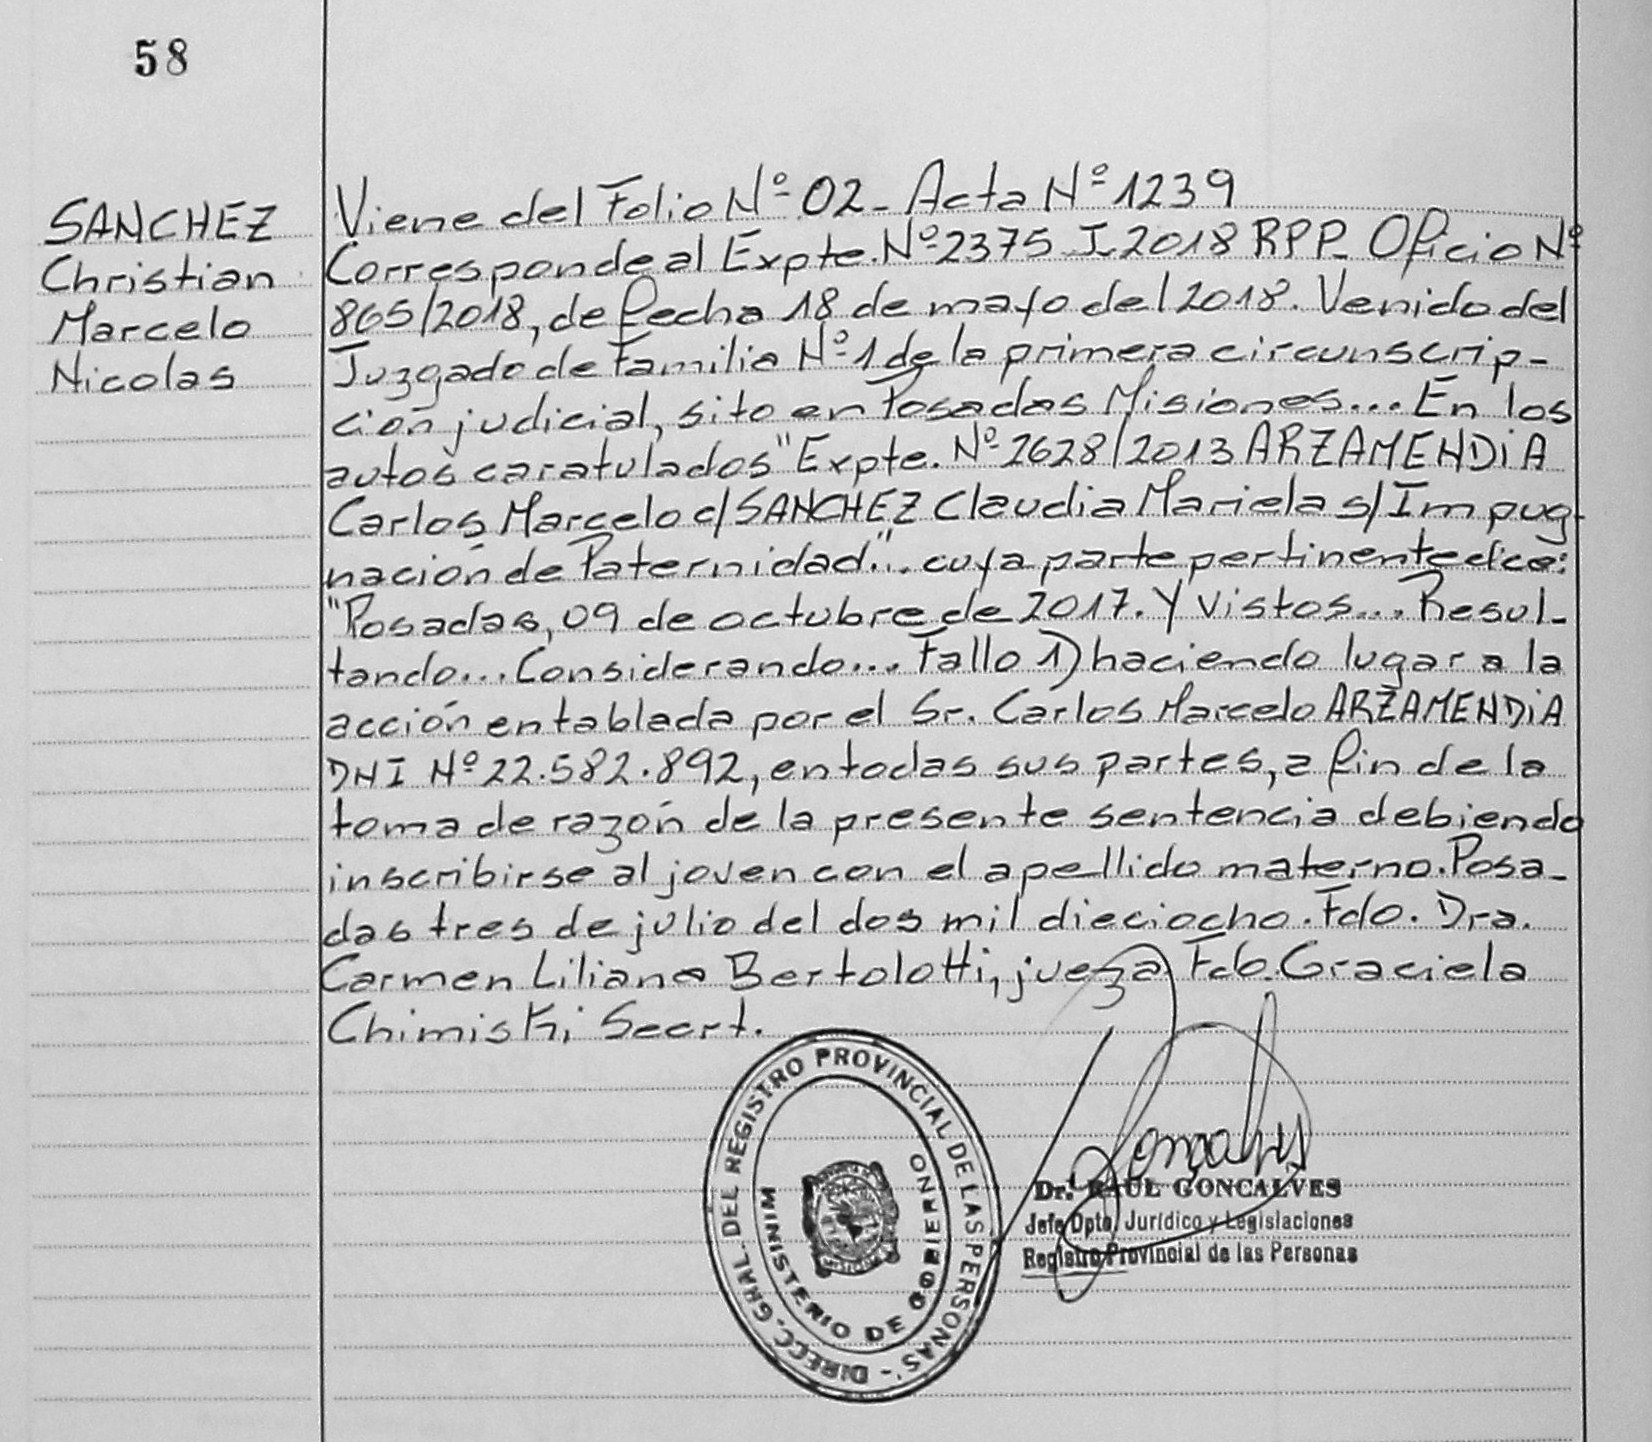 58
SANCHEZ
Christian
Marcelo
Nicolas
Viene del Folio Nº 02 - Acta Nº 1239
Corresponde al Expte. Nº 2375 I 2018 RPP - Oficio Nº
865/2018, de fecha 18 de mayo del 2018. Venido del
Juzgado de Familia Nº 1 de la primera circunscrip-
ción judicial, sito en Posadas Misiones... En los
autos caratulados "Expte. Nº 2628/2013 ARZAMENDiA
Carlos Marcelo c/ SANCHEZ Claudia Mariela s/ Impug-
nación de Paternidad." .. cuya parte pertinente dice:
"Posadas, 09 de octubre de 2017. Y Vistos... Resul-
tando... Considerando... Fallo 1) haciendo lugar a la
acción entablada por el Sr. Carlos Marcelo ARZAMENDiA
DNI Nº 22.582.892, en todas sus partes, a fin de la
toma de razón de la presente sentencia debiendo
inscribirse al joven con el apellido materno. Posa-
das tres de julio del dos mil dieciocho. Fdo. Dra.
Carmen Liliana Bertolotti, jueza Fdo. Graciela
Chimiski Secrt.
DIRECC. GRAL. DEL REGISTRO PROVINCIAL DE LAS PERSONAS.-
MINISTERIO DE GOBIERNO
Dr. RAUL GONCALVES
Jefe Dpto. Jurídico y Legislaciones
Registro Provincial de las Personas